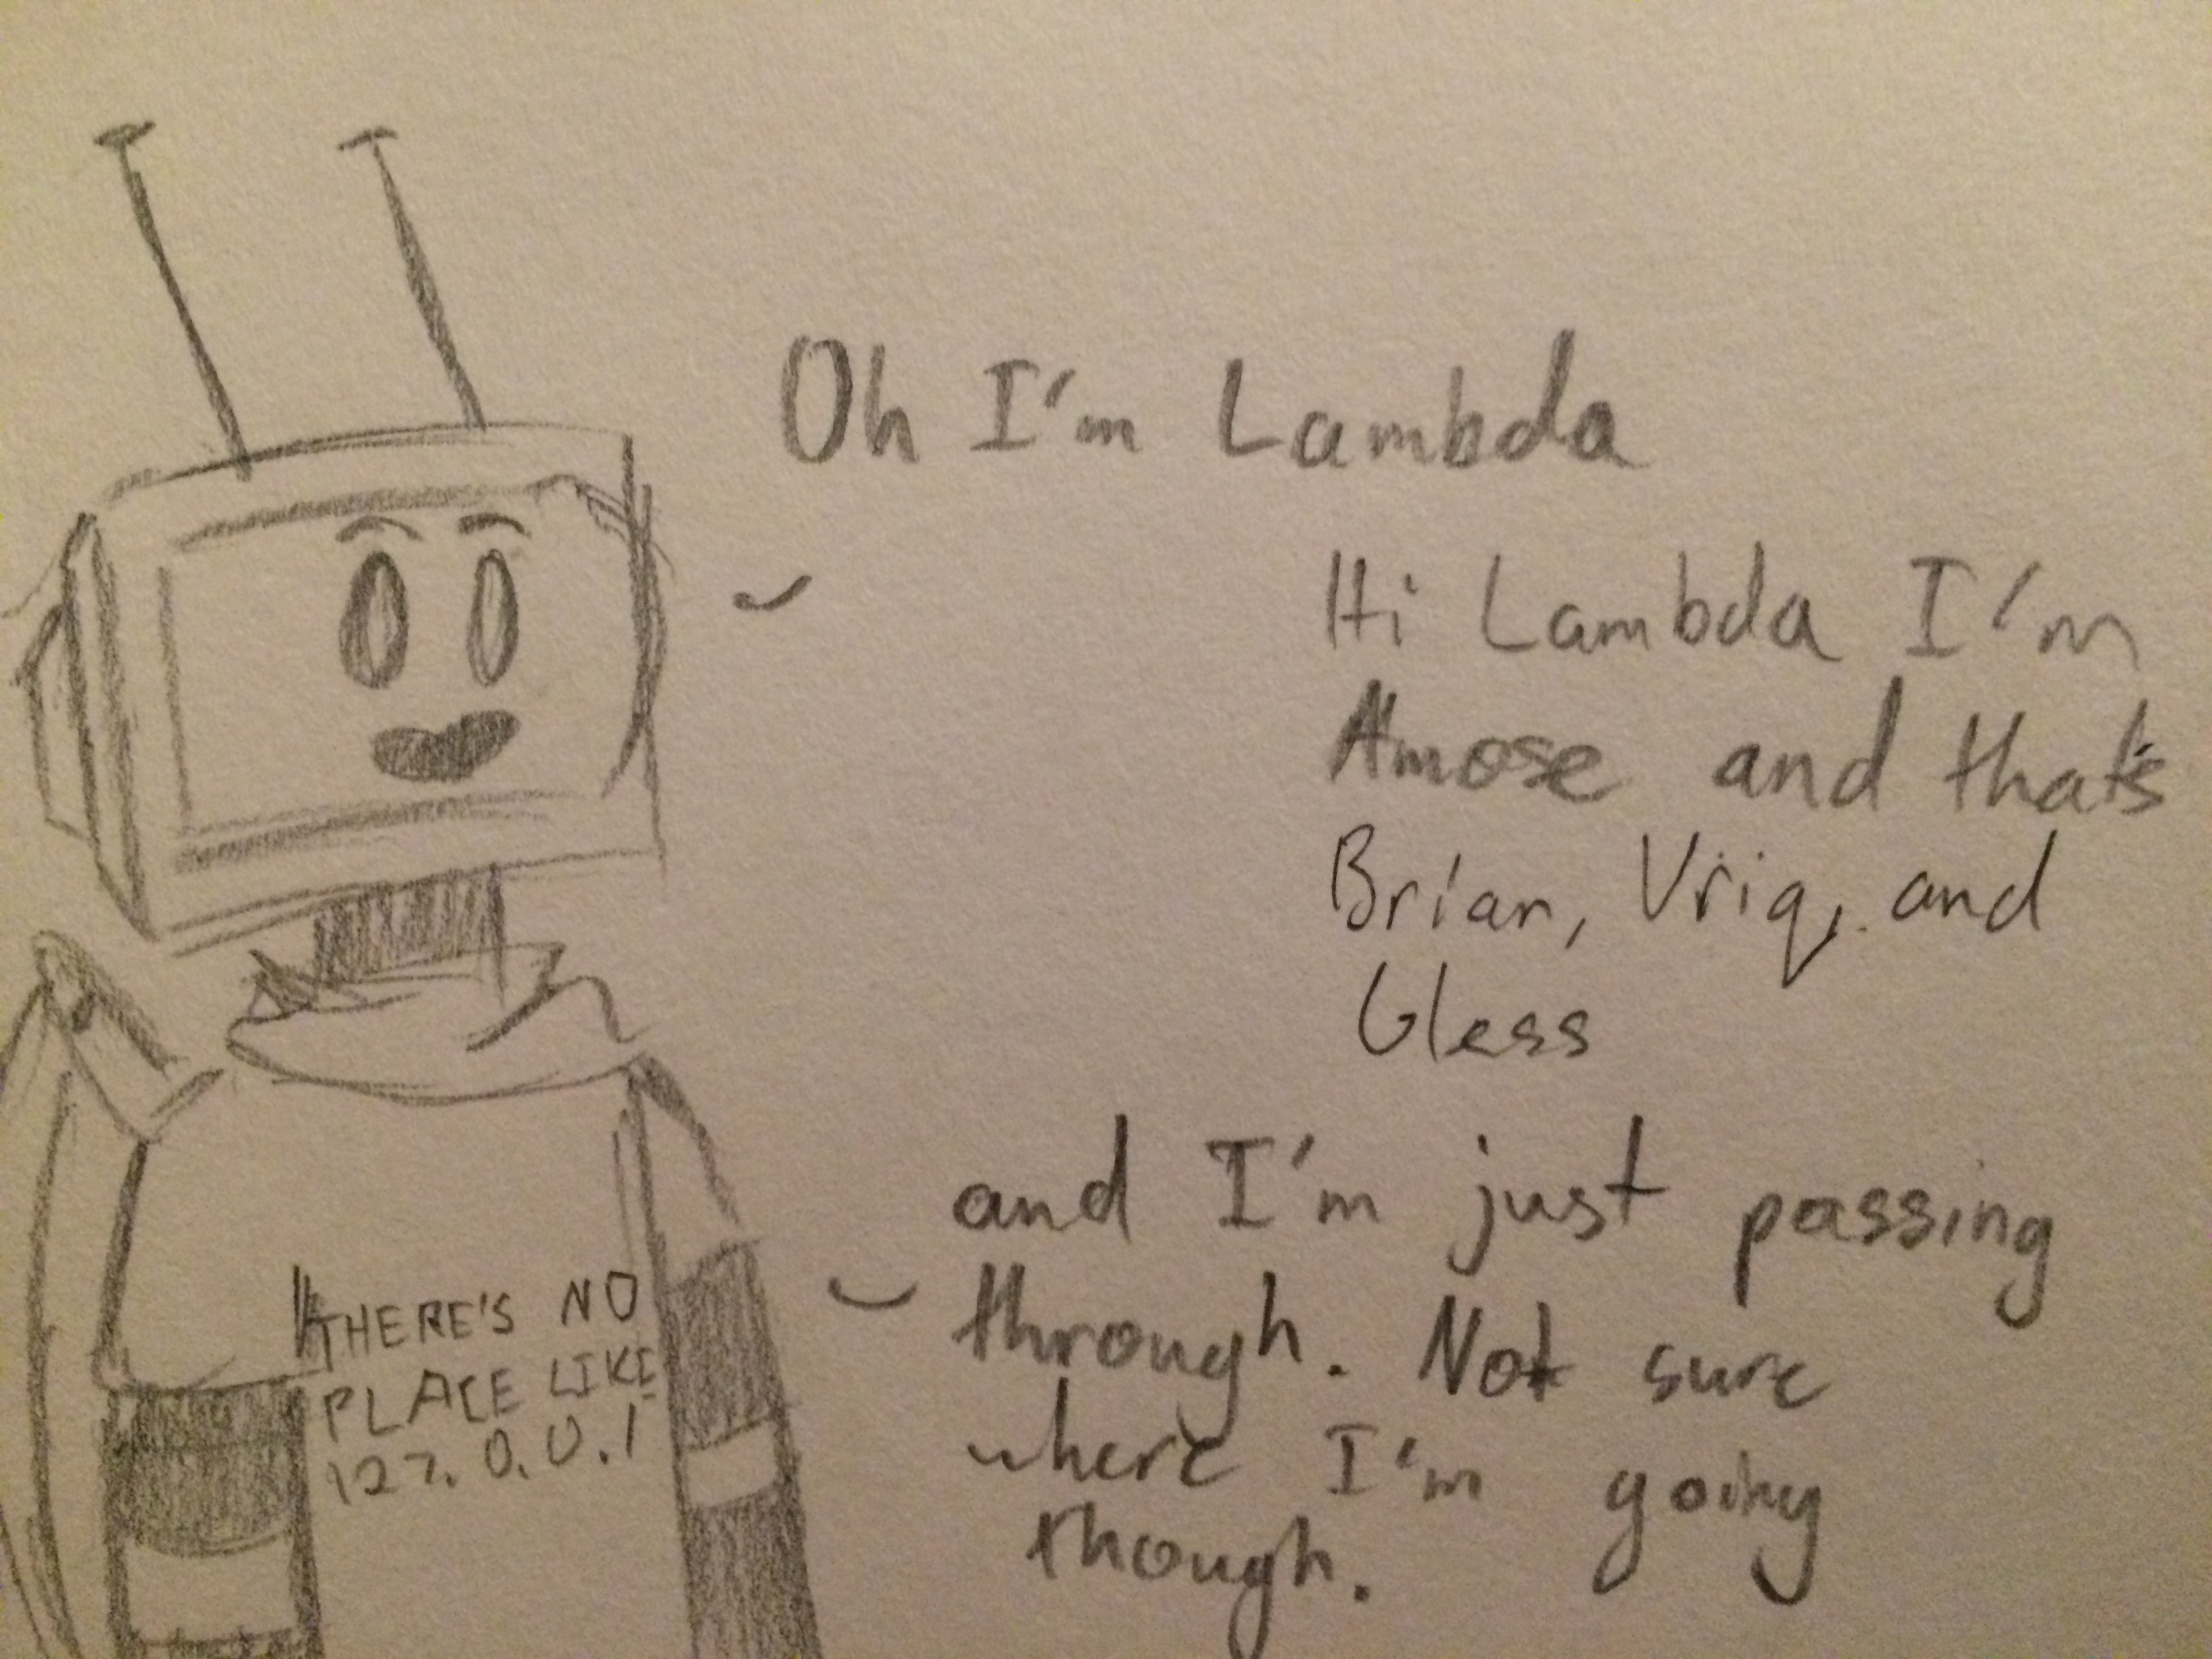 Oh I'm Lambda
Hi Lambda I'm
Amose and that's
Brian, Vriq, and
Gless
and I'm just passing
through. Not sure
where I'm going
though.
THERE'S NO
PLACE LIKE
127.0.0.1